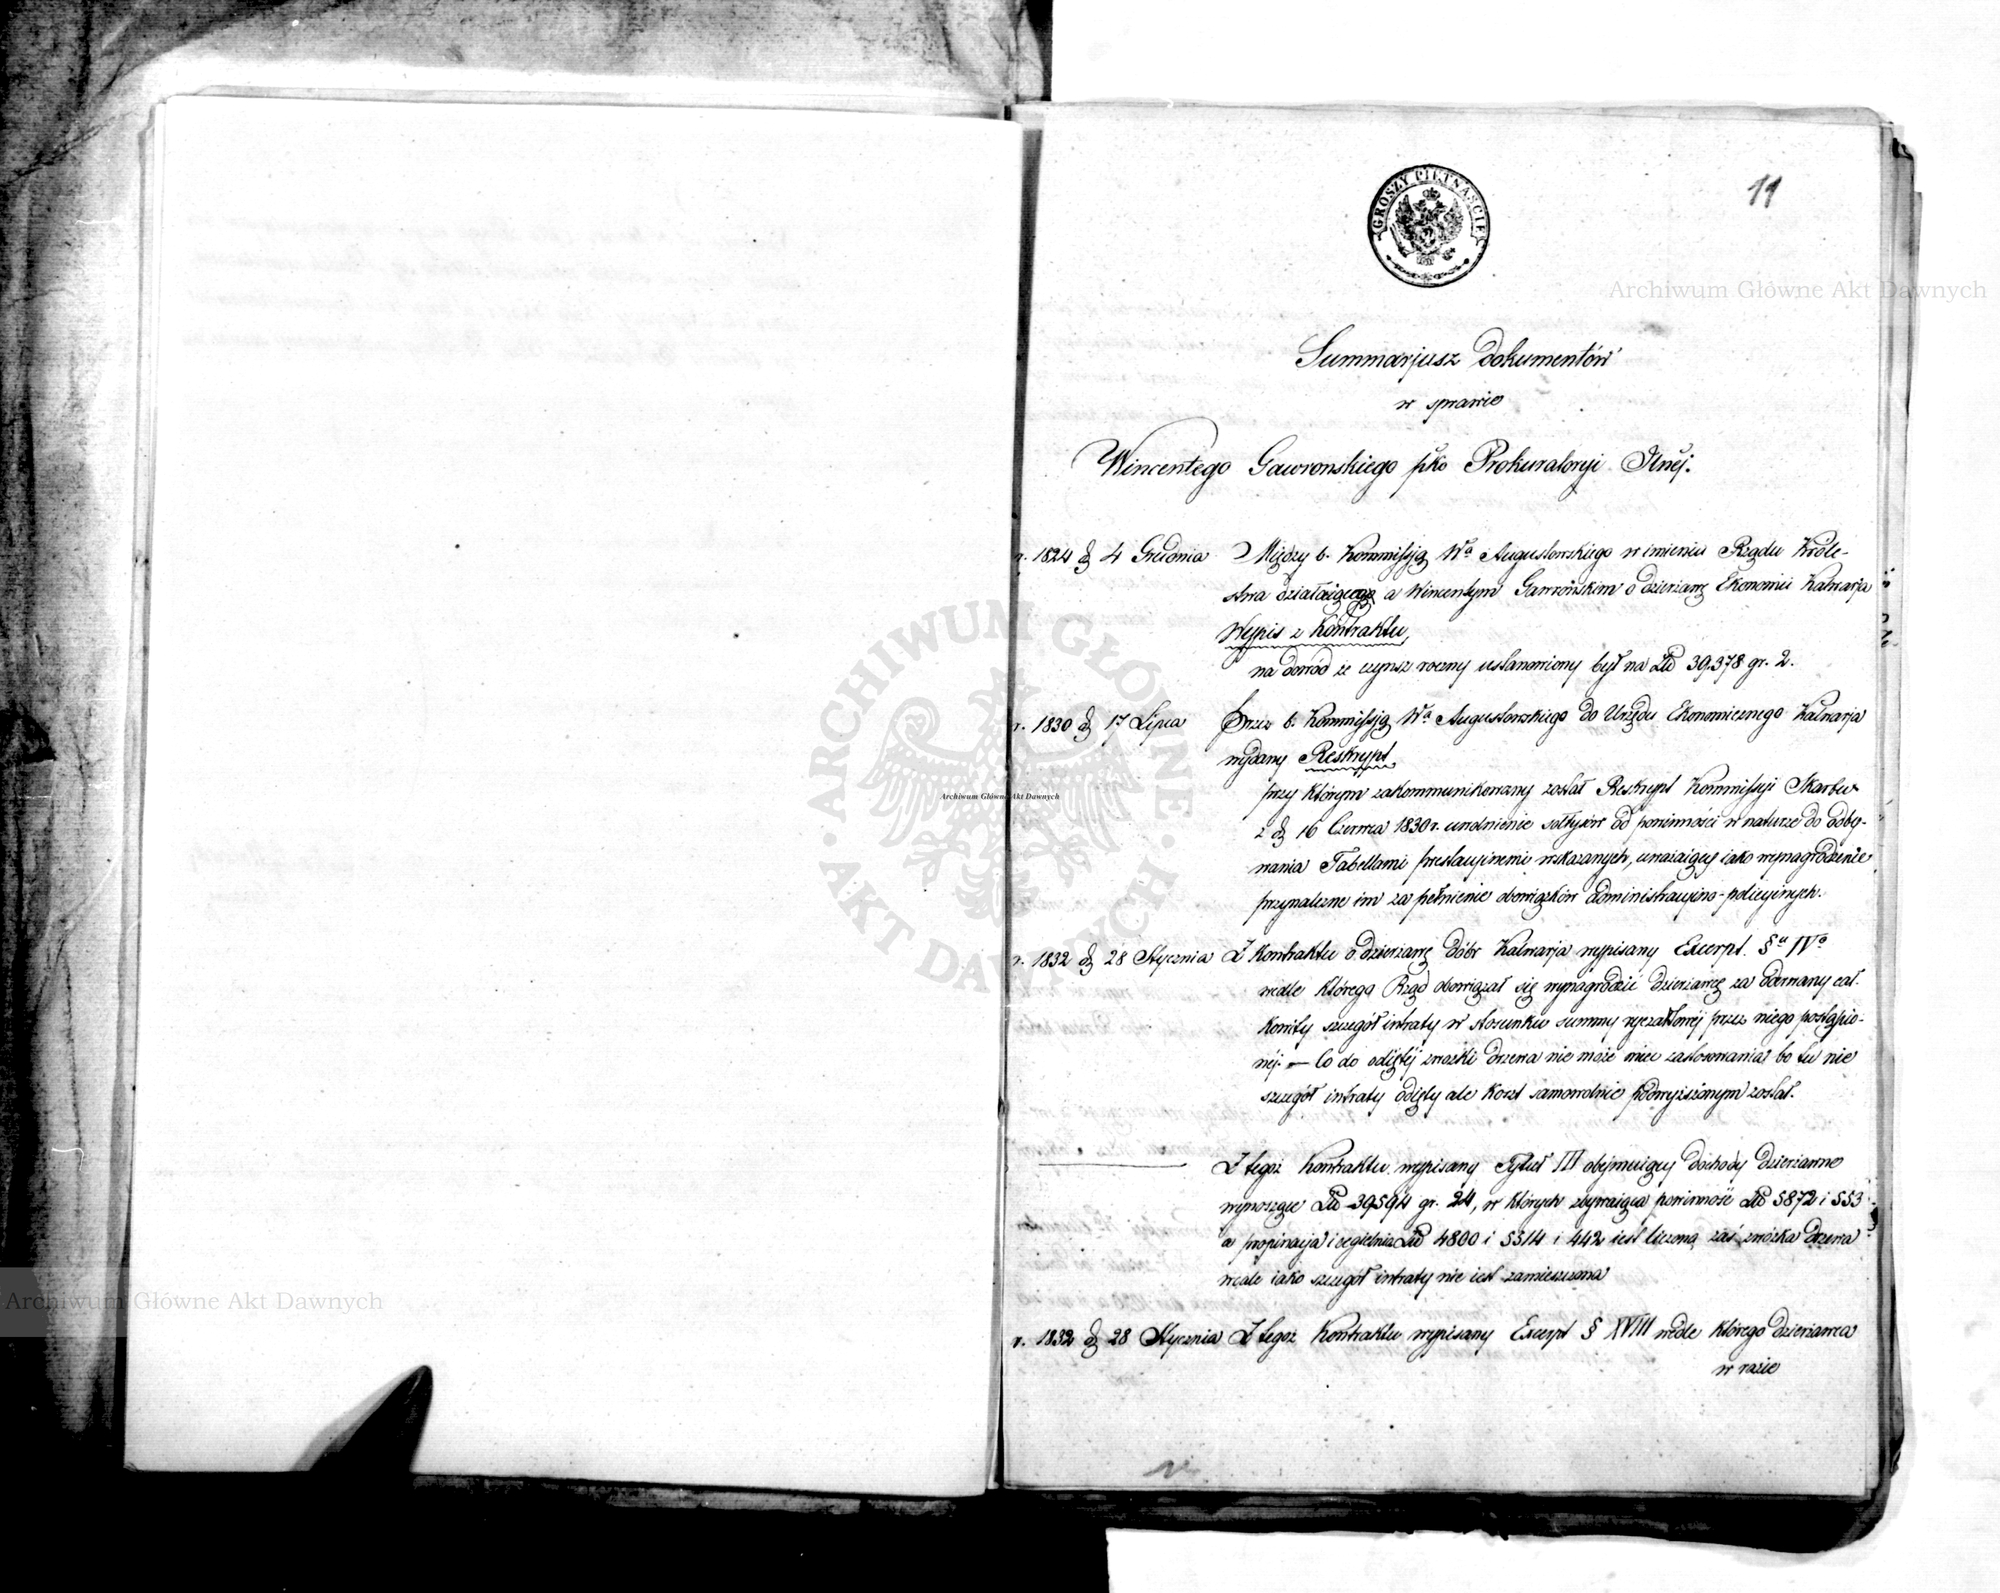 11
GROSZY PIĘTNAŚCIE
Summarjusz dokumentów
w sprawie
Wincentego Gawronskiego pko Prokuratoryi
r. 1824 d 4 Grudnia Między b. Kommissją Wa Augustowskiego w imieniu Rządu Króle-
stwa działaiącego a Wincentym Gawrońskim o dzierżawę Ekonomii Kalwarja
Wypis z Kontraktu,
na dowód że czynsz roczny ustanowiony był na Złp 39,378 gr. 2.
r. 1830 d 17 Lipca Przez b. Kommissją Wa Augustowskiego do Urzędu Ekonomicznego Kalwarja
wydany Reskrypt,
przy którym zakommunikowany został Reskrypt Kommissyi Skarbu
z d 16 Czerwca 1830 r. uwolnienie sołtysów od powinności w naturze do odby-
wania Tabellami prestacyinemi wskazanych, uważaiący iako wynagrodzenie
przynależne im za pełnienie obowiązków administracyino-policyinych.
r. 1832 d 28 Stycznia Z Kontraktu o dzierżawę dóbr Kalwarja wypisany Excerpt. §u IVo
wedle którego Rząd obowiązał się wynagrodzić dzierżawcę za oderwany cał-
kowity szczegół intraty w stosunku summy ryczałtowéj przez niego postąpio-
néj. — Co do odiętéj zwózki drzewa nie może mieć zastosowania bo tu nie
szczegół intraty odięty ale koszt samowolnie podwyższonym został.
Z tegoż Kontraktu wypisany Tytuł III obéjmuiący dochody dzierżawne
wynoszące Złp 39594 gr. 24, w których zbywaiąca powinność Złp 5872 i 553
a propinacja i cegielnia Złp 4800 i 5314 i 442 iest liczoną zaś zwózka drzewa
wcale iako szczegół intraty nie iest zamieszczona
r. 1832 d 28 Stycznia Z tegoż Kontraktu wypisany Excerpt § XVIII wedle którego dzierżawca
w razie
Archiwum Główne Akt Dawnych
Archiwum Główne Akt Dawnych
Archiwum Główne Akt Dawnych
ARCHIWUM GŁÓWNE AKT DAWNYCH